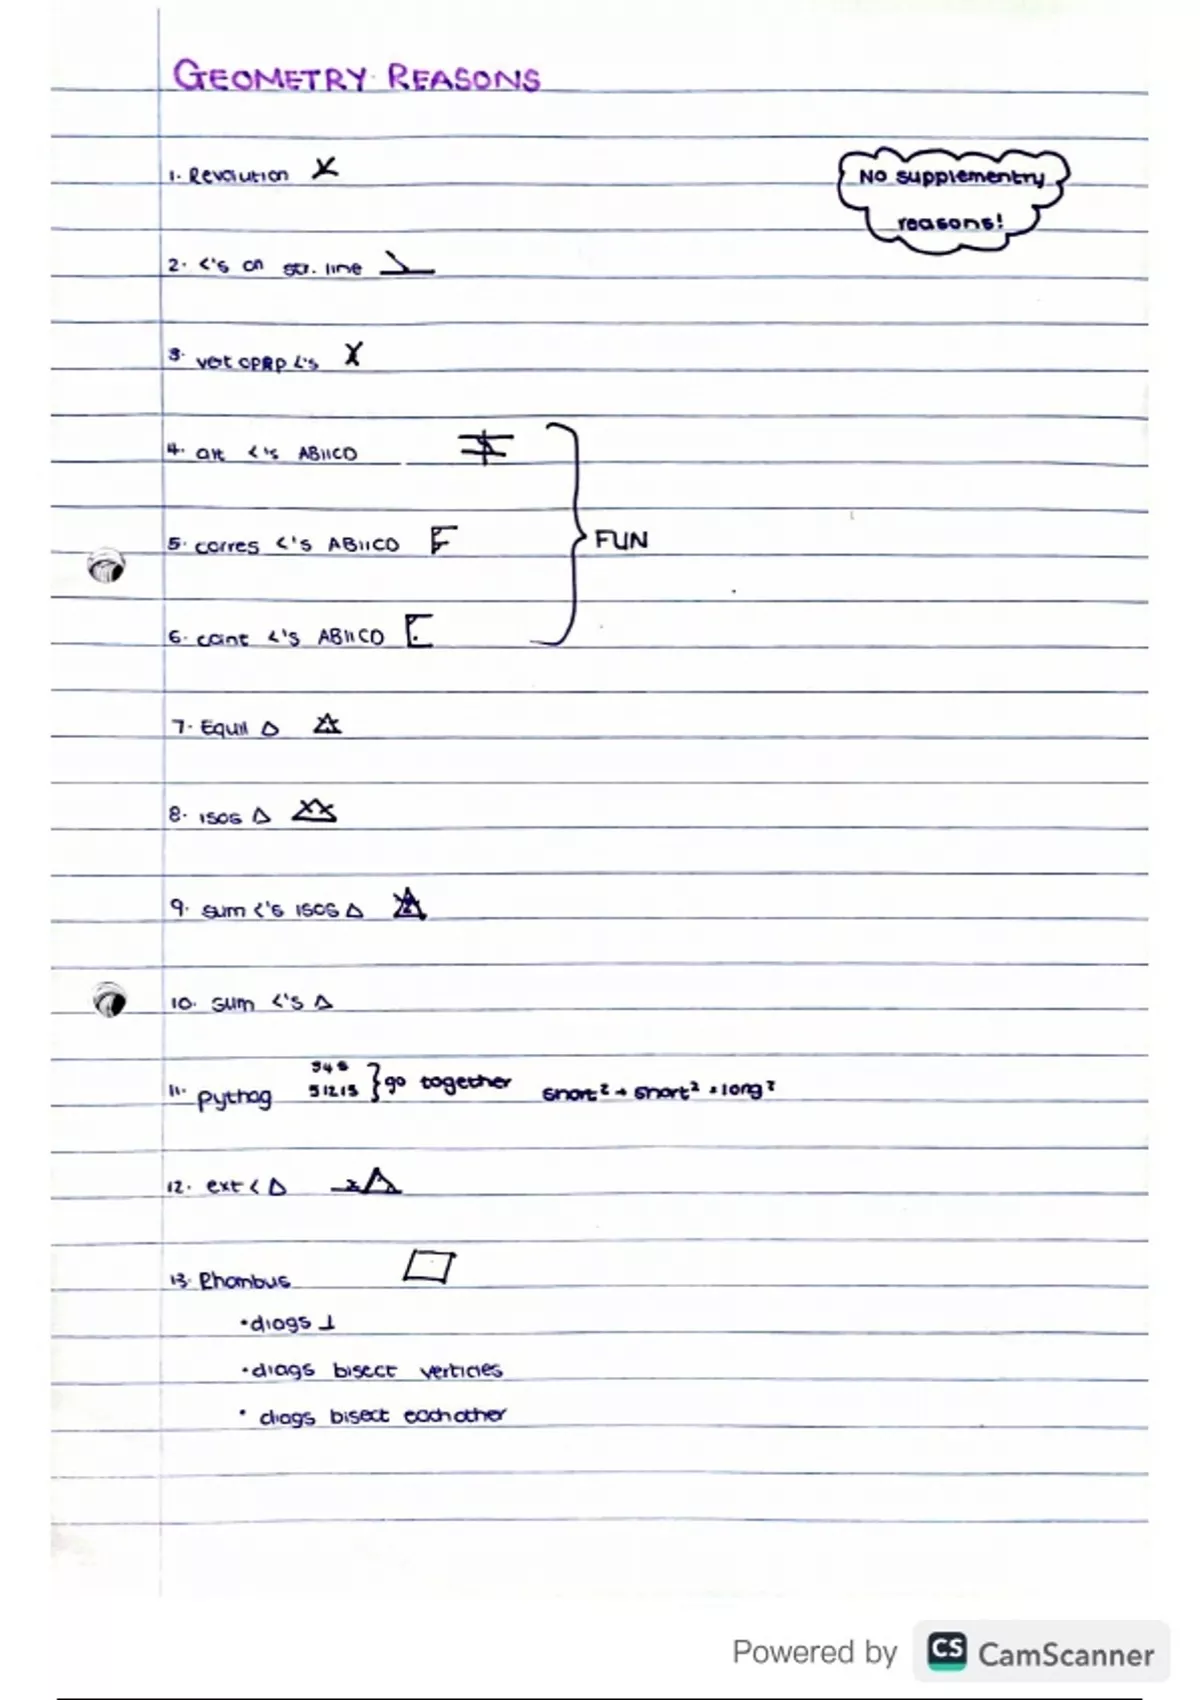 GEOMETRY REASONS
1. Revolution
No supplementry
reasons!
2. <'s on str. line
3. vert opp <'s
4. alt <'s AB||CD
5. corres <'s AB||CD
FUN
6. coint <'s AB||CD
7. Equil △
8. isos △
9. sum <'s isos △
10. sum <'s △
11. pythag 3 4 5
5 12 13 } go together short² + short² = long²
12. ext < △
13. Rhombus
• diags ⊥
• diags bisect verticies
• diags bisect each other
Powered by CS CamScanner